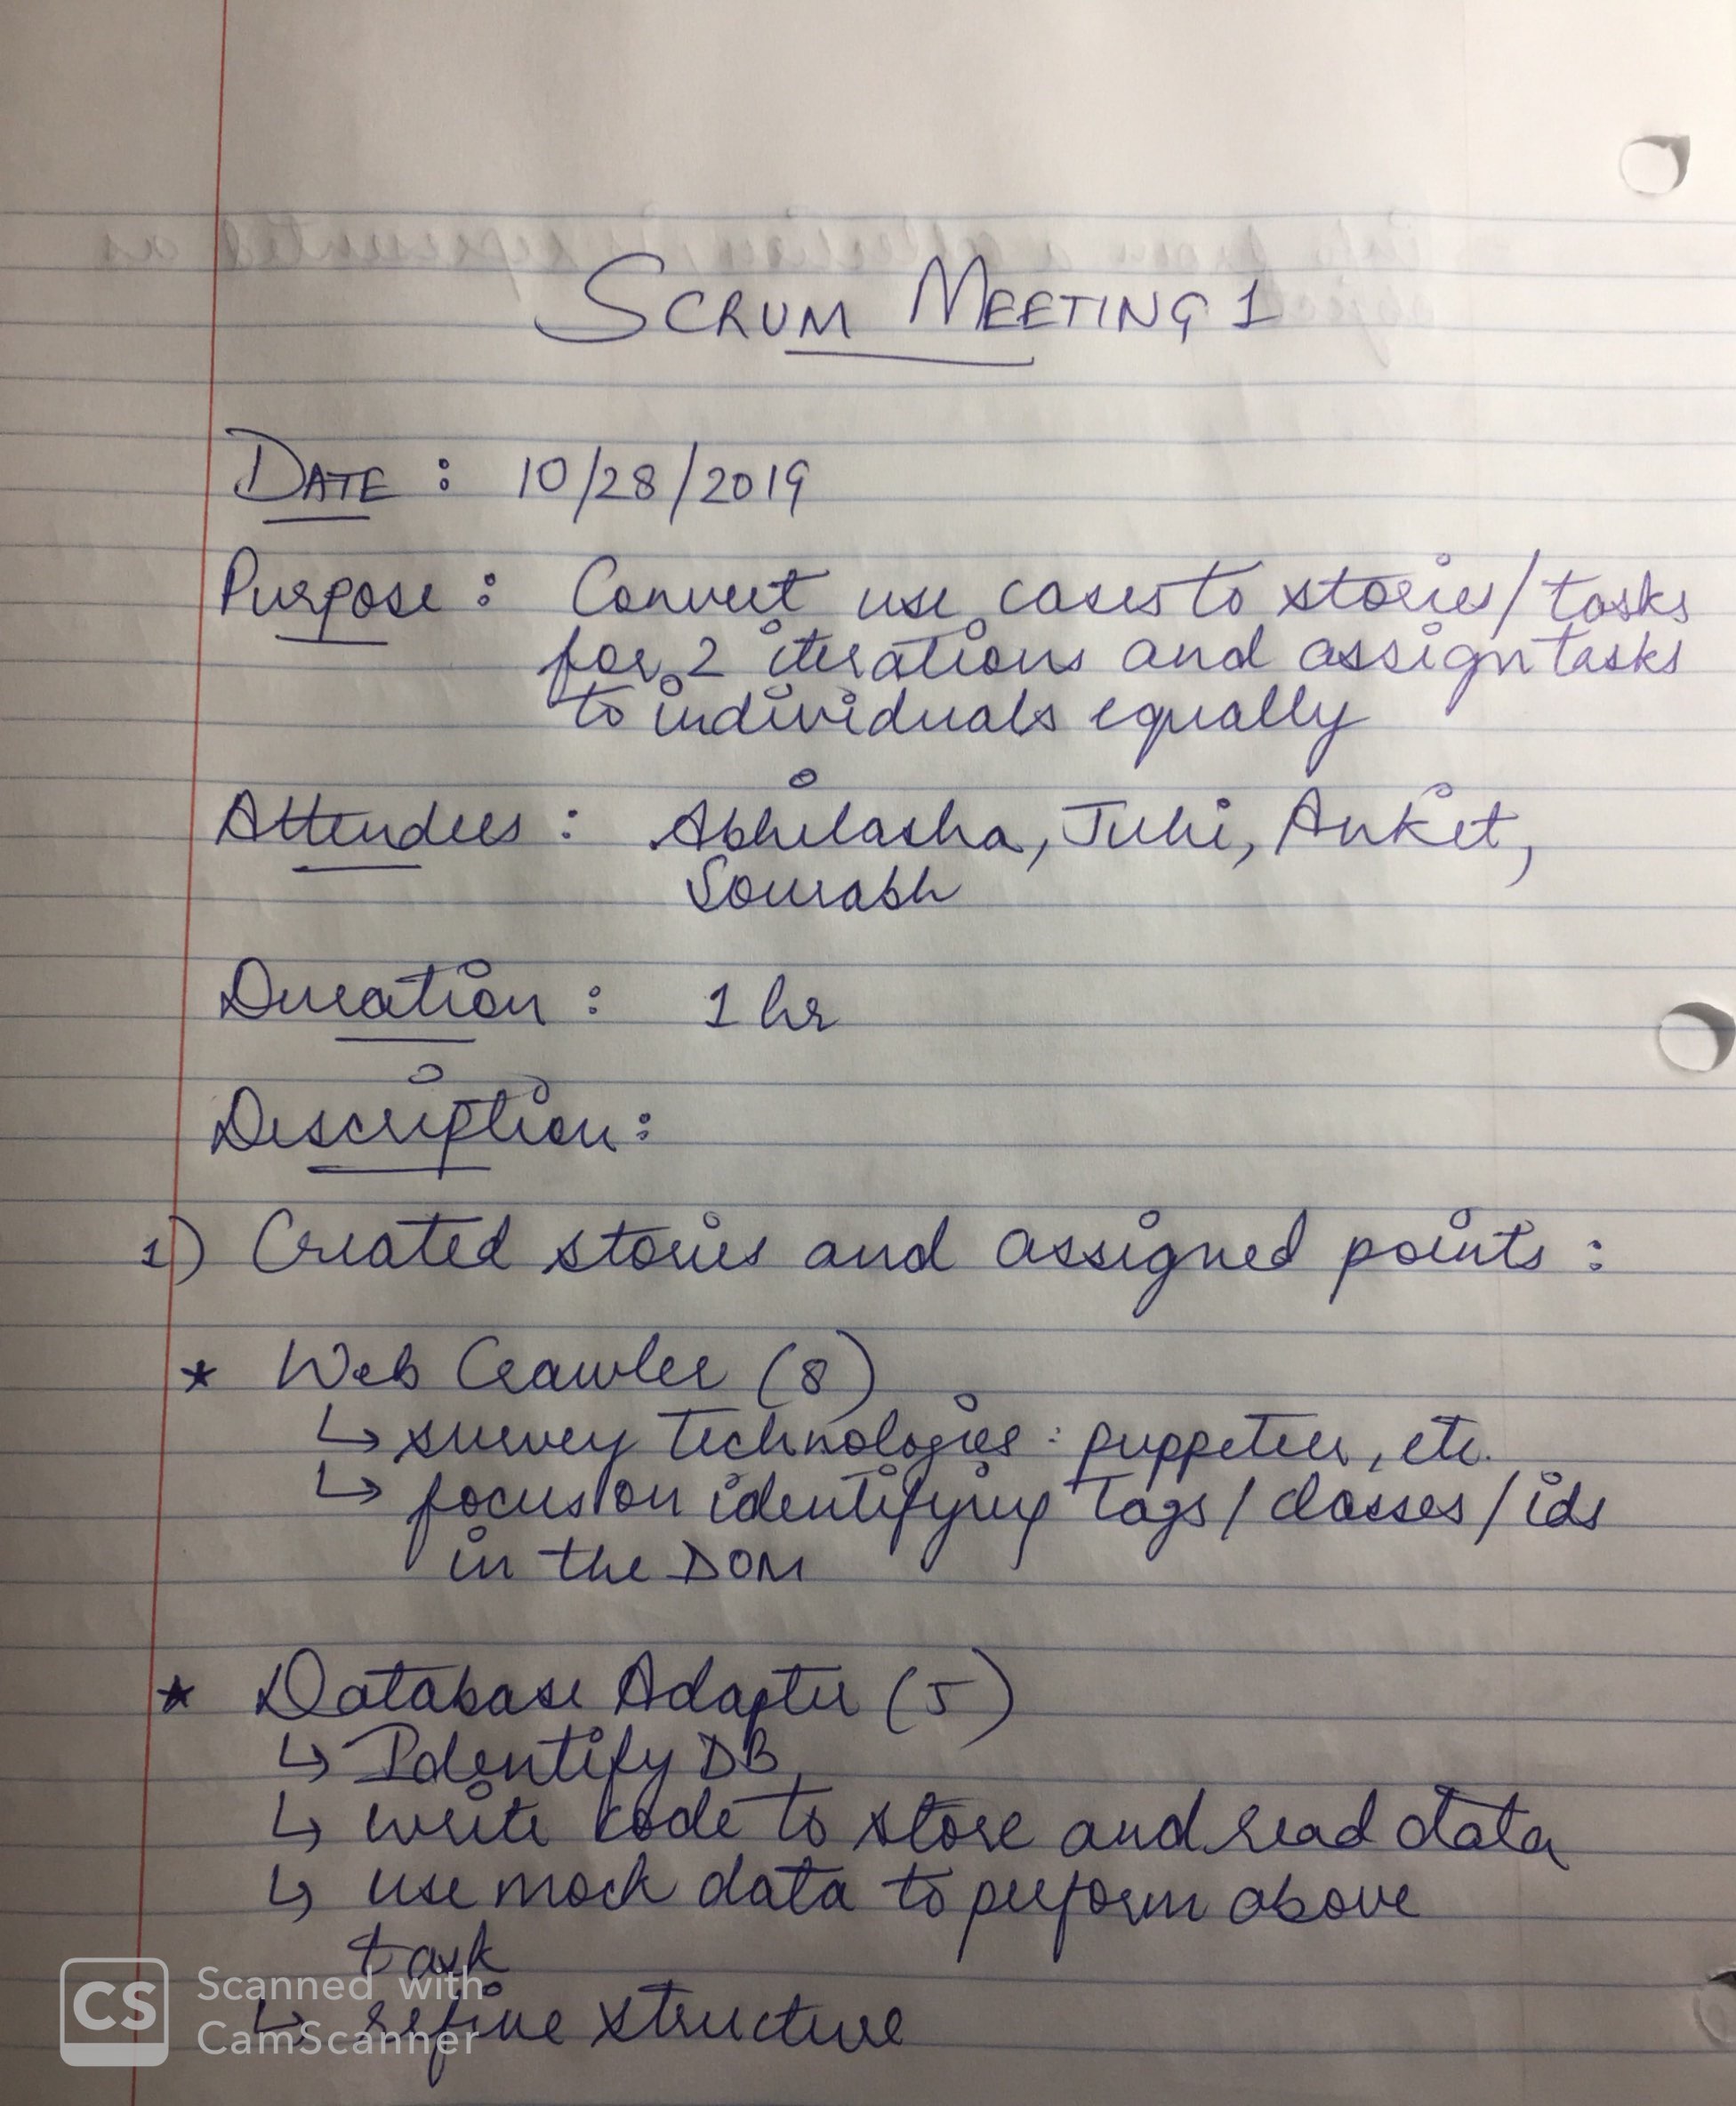 SCRUM MEETING 1
DATE : 10/28/2019
Purpose : Convert use cases to stories/tasks
for 2 iterations and assign tasks
to individuals equally
Attendees : Abhilasha, Juhi, Anket,
Sourabh
Duration : 1 hr
Description :
1) Created stories and assigned points :
* Web Crawler (8)
↳ survey technologies : puppeteer, etc.
↳ focus on identifying tags / classes / ids
in the DOM
* Database Adapter (5)
↳ Identify DB
↳ write code to store and read data
↳ use mock data to perform above
task
↳ refine structure
CS Scanned with
CamScanner